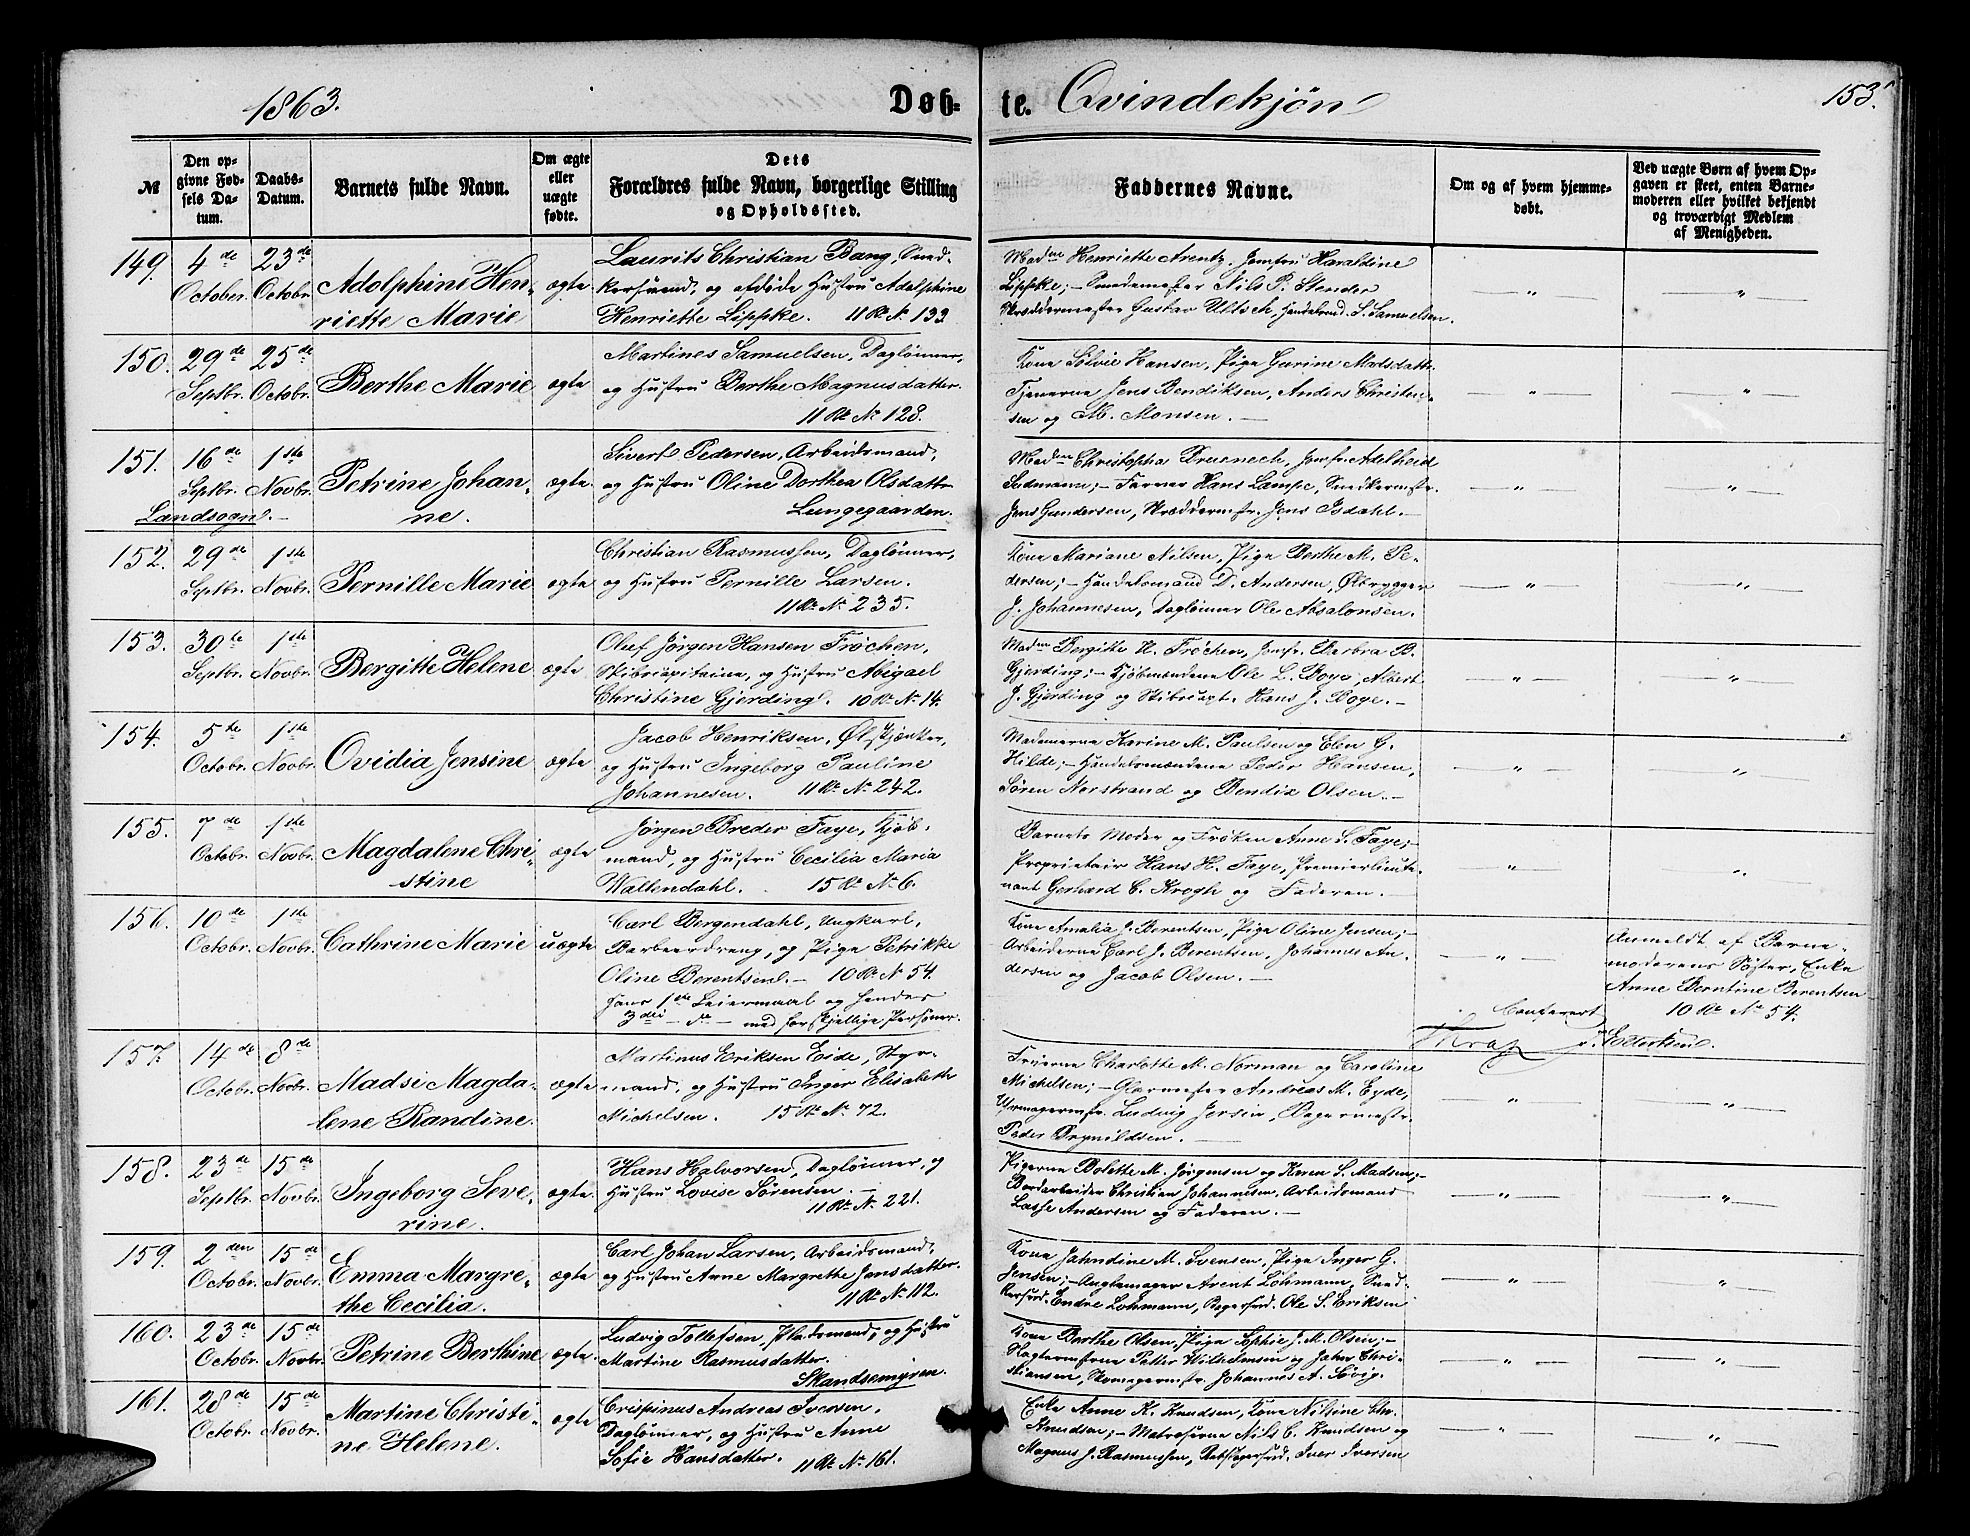 1863.
Døb-
te. Qvindekjøn
153.
№
Den op-
givne Fød-
sels Da-
tum.
Daabs-
Datum.
Barnets fulde Navn.
Om ægte
eller
uægte
fødte.
Dets
Forældres fulde Navn, borgerlige Stilling
og Opholdssted.
Faddernes Navne.
Om og af hvem hjemme-
døbt.
Ved uægte Børn af hvem Op-
gaven er skeet, enten Barne-
moderen eller hvilket bekjendt
og troværdigt Medlem
af Menigheden.
149. 4de October. 23de Octobr.
Adolphine Hen-
riette Marie
ægte
Laurits Christian Bang, Sned-
kersvend, og afdøde Hustru Adolphine
Henriette Lippke. 11 R. N. 133
Madm Henriette Arentz, Jomfru Haraldine
Lippke; – Smedemester Nils P. Stender
Skræddermester Gustav Ultsch, Handelsmd. S. Samuelsen.
150. 29de Septbr. 25de Octobr.
Berthe Marie
ægte
Martines Samuelsen, Daglønner,
og Hustru Berthe Magnusdatter.
11 R. N. 128.
Kone Sølvie Hansen, Pige Gurine Matsdattr.
Tjenerne Jens Bendiksen, Anders Christen-
sen og M. Monsen. –
151. 16de Septbr. 1ste Novbr.
Landsogn. –
Petrine Johan-
ne.
ægte.
Sivert Pedersen, Arbeidsmand,
og Hustru Oline Dorthea Olsdattr
Lungegaarden.
Madm Christopha Bruenech, Jomfr. Adelheid
Sudmann; – Farver Hans Lampe, Snedkermstr.
Jens Gundersen, Skræddermstr. Jens Isdahl. –
152. 29de Septbr. 1ste Novbr.
Pernille Marie
ægte
Christian Rasmussen, Daglønner,
og Hustru Pernille Larsen.
11 R. N. 235.
Kone Mariane Nilsen, Pige Berthe M. Pe-
dersen; – Handelsmand D. Andersen, Ølbrygger
J. Johannesen, Daglønner Ole Absalonsen.
153. 30te Septbr. 1ste Novbr.
Bergitte Helene
ægte
Oluf Jørgen Hansen Frøchen,
Skibscapitaine, og Hustru Abigael
Christine Gjerding. 10 R. N. 14.
Madm Bergitte H. Frøchen, Jomfr. Barbra B.
Gjerding; – Kjøbmændene Ole L. Boge, Albert
J. Gjerding og Skibscapt. Hans J. Boge. –
154. 5te Octobr. 1ste Novbr.
Ovidia Jensine
ægte
Jacob Henriksen, Ølskjænker,
og Hustru Ingeborg Pauline
Johannesen. 11 R. N. 242.
Madamerne Karine M. Paulsen og Elen G.
Hilde; – Handelsmændene Peder Hansen,
Søren Norstrand og Bendix Olsen. –
155. 7de Octobr. 1ste Novbr.
Magdalene Chri-
stine
ægte
Jørgen Breder Faye, Kjøb-
mand, og Hustru Cecilia Maria
Wallendahl. 15 R. N. 6.
Barnets Moder og Frøken Anne S. Faye; –
Proprietair Hans H. Faye, Premierlieute-
nant Gerhard C. Krogh og Faderen. –
156. 10de Octobr. 1ste Novbr.
Cathrine Marie
uægte
Carl Bergendahl, Ungkarl,
Barbeerdreng, og Pige Petrikke
Oline Berentsen. – 10 R. N. 54.
Hans 1ste Leiermaal og hendes
3die – do – med forskjellige Personer.
Kone Amalia J. Berentsen, Pige Oline Jensen; –
Arbeiderne Carl J. Berentsen, Johannes An-
dersen og Jacob Olsen. –
Anmeldt af Barne-
moderens Søster, Enke
Anne Berntine Berentsen
10 R. N. 54.
Confereret
157. 14de Octobr. 8de Novbr.
Madsi Magda-
lene Randine.
ægte
Martinus Eriksen Eide, Styr-
mand, og Hustru Inger Elisabeth
Michelsen. 15 R. N. 72.
Fruerne Charlotte M. Norman og Caroline
Michelsen; – Glarmester Andreas M. Eyde,
Uhrmagermstr. Ludvig Jersin, Bagermestr.
Peder Brynildsen. –
158. 23de Septbr. 15de Novbr.
Ingeborg Seve-
rine.
ægte.
Hans Halvorsen, Daglønner, og
Hustru Lovise Sørensen. –
11 R. N. 221.
Pigerne Bolette M. Jørgensen og Karen S. Madsen; –
Bordarbeider Christian Johannesen, Arbeidsmand
Lasse Andersen og Faderen. –
159. 2den Octobr. 15de Novbr.
Emma Margre-
the Cecilia.
ægte
Carl Johan Larsen, Arbeidsmand,
og Hustru Anne Margrethe Jensdatter.
11 R. N. 112.
Kone Jahndine M. Svensen, Pige Inger G.
Jensen; – Arent Lohmann, Sned-
kersvd. Endre Lohmann, Bagersvd. Ole S. Eriksen
160. 23de Octobr. 15de Novbr.
Petrine Berthine
ægte.
Ludvig Tollefsen, Pladsmand, og Hustru
Martine Rasmusdatter.
Skandsemyren.
Kone Berthe Olsen, Pige Sophie J. M. Olsen; –
Slagtermstrene Petter Wilhelmsen og John Chri-
stiansen, Skomagermstr. Johannes A. Søvig.
161. 28de Octobr. 15de Novbr.
Martine Christi-
ne Helene.
ægte
Crispinus Andreas Iversen,
Daglønner, og Hustru Anne
Sofie Hansdatter. 11 R. N. 161.
Enke Anne K. Knudsen, Kone Nilsine Chr.
Knudsen; – Matroserne Nils C. Knudsen og
Magnus J. Rasmussen, Rebslagersvd. Iver Iversen